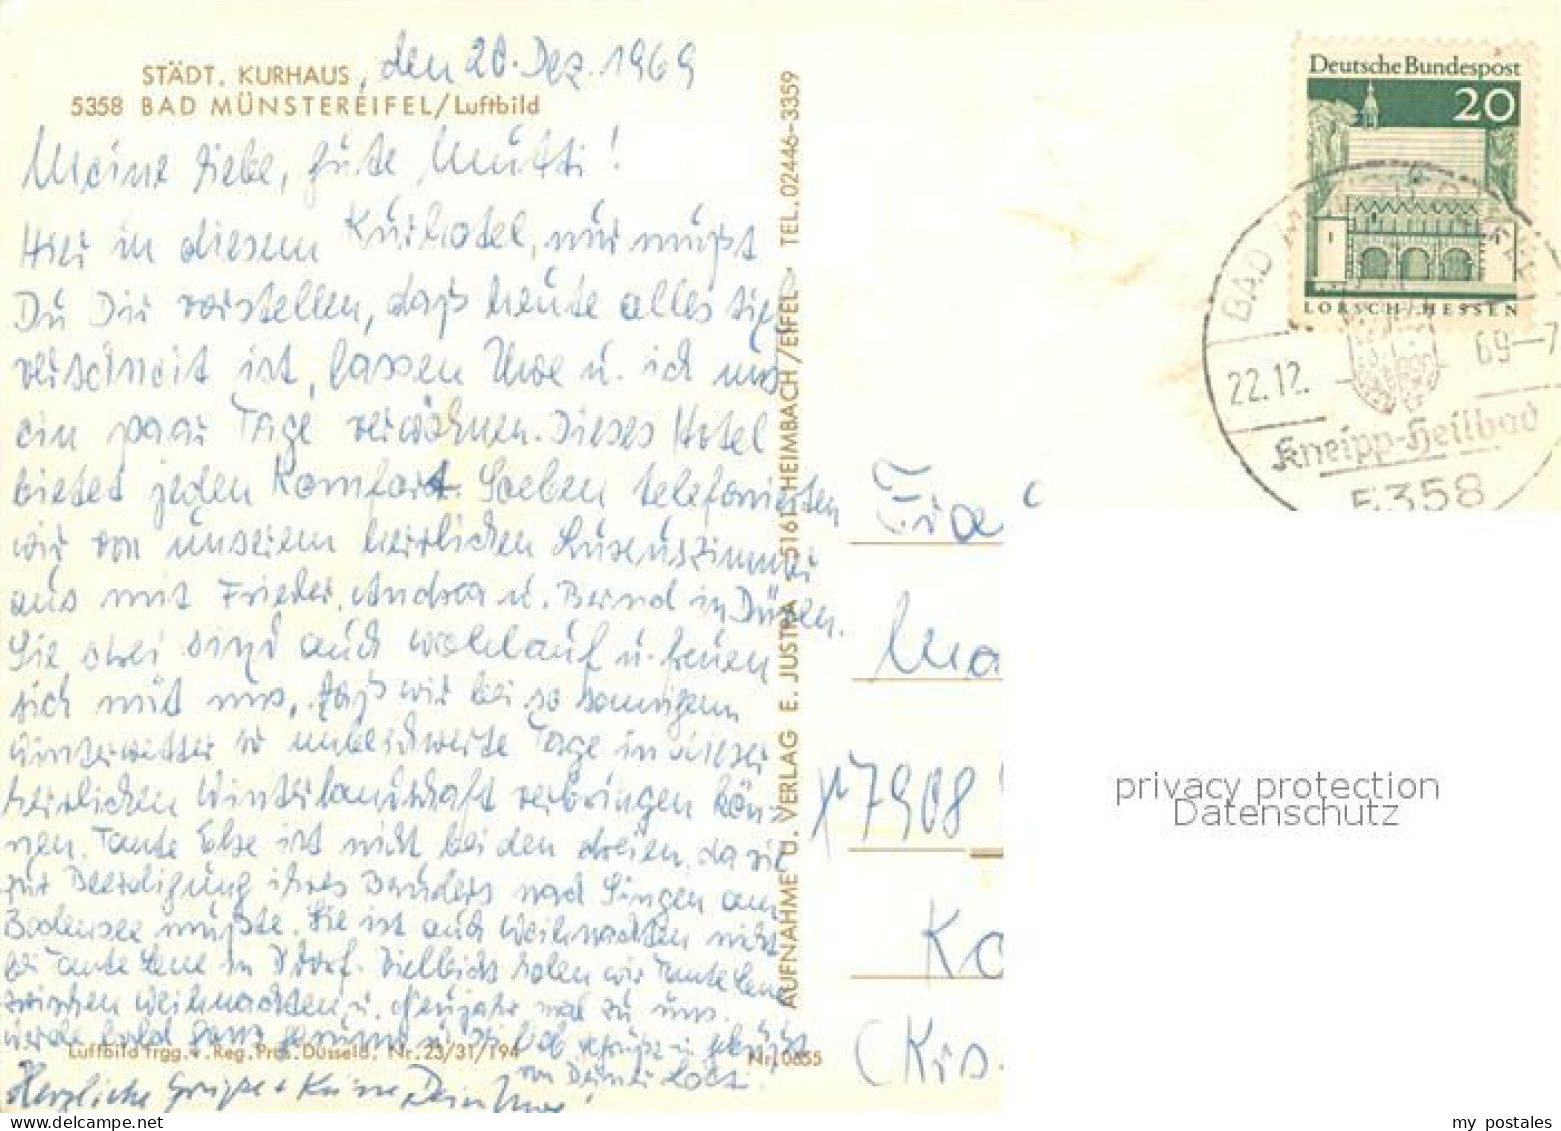 STÄDT. KURHAUS, den 20. Dez. 1969
5358 BAD MÜNSTEREIFEL/Luftbild
Meine liebe, gute Mutti!
Hier in diesem Kurhotel, nur mußt
Du Dir vorstellen, daß heute alles tief
verschneit ist, lassen Uwe u. ich uns
ein paar Tage verwöhnen. Dieses Hotel
bietet jeden Komfort. Soeben telefonierten
wir von unserem herrlichen Luxuszimmer
aus mit Frieder, Andrea u. Bernd in Düren.
Sie drei sind auch wohlauf u. freuen
sich mit uns, daß wir bei so sonnigem
Winterwetter so unbeschwerte Tage in dieser
herrlichen Winterlandschaft verbringen kön-
nen. Tante Else ist nicht bei den dreien, da sie
zur Beerdigung ihres Bruders nach Singen am
Bodensee mußte. Sie ist auch Weihnachten nicht
bei Tante Lene in Ddorf. Vielleicht holen wir Tante Lene
zwischen Weihnachten u. Neujahr mal zu uns.
Werde bald ganz gesund u. sei lieb gegrüßt u. geküßt
von Deiner
Herzliche Grüße + Küsse, Dein Uwe!
Luftbild frgg. v. Reg. Präs. Düsseld. Nr. 23/31/194
Nr. 0655
AUFNAHME U. VERLAG E. JUSTRA - 5161 HEIMBACH/EIFEL - TEL. 02446-3359
Deutsche Bundespost
20
LORSCH/HESSEN
BAD MÜNSTEREIFEL
22.12. 69-7
Kneipp-Heilbad
5358
Frau
Ma
7908
Ko
(Krs.
privacy protection
Datenschutz
my postales